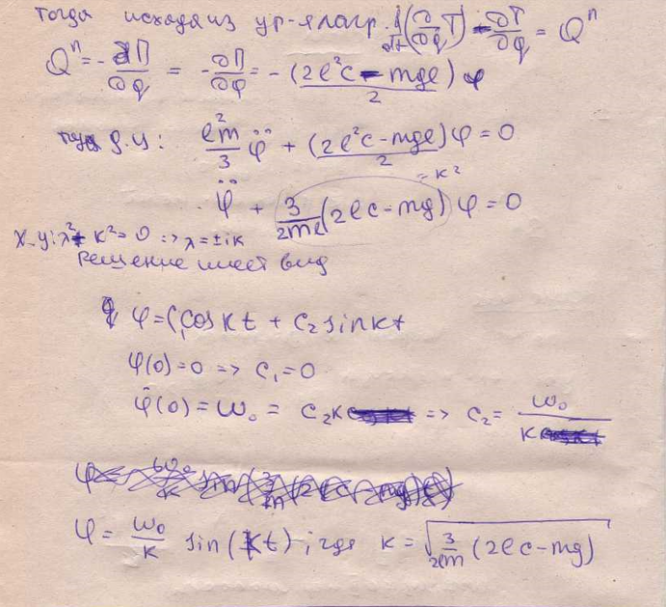 тогда исходя из ур-я лагр. d/dt(∂/∂q̇ T) - ∂T/∂q = Qⁿ
Qⁿ = -∂П/∂q = -∂П/∂φ = -(2l²c - mgl)/2 φ
д.у: l²m/3 φ̈ + (2l²c - mgl)/2 φ = 0
= к²
φ̈ + 3/2ml (2lc - mg) φ = 0
х-у: λ² + к² = 0 => λ = ±iк
Решение имеет вид
φ = C₁cos кt + C₂ sin кt
φ(0) = 0 => C₁ = 0
φ̇(0) = ω₀ = C₂к => C₂ = ω₀/к
φ = ω₀/к sin(кt), где к = √(3/2lm (2lc - mg))